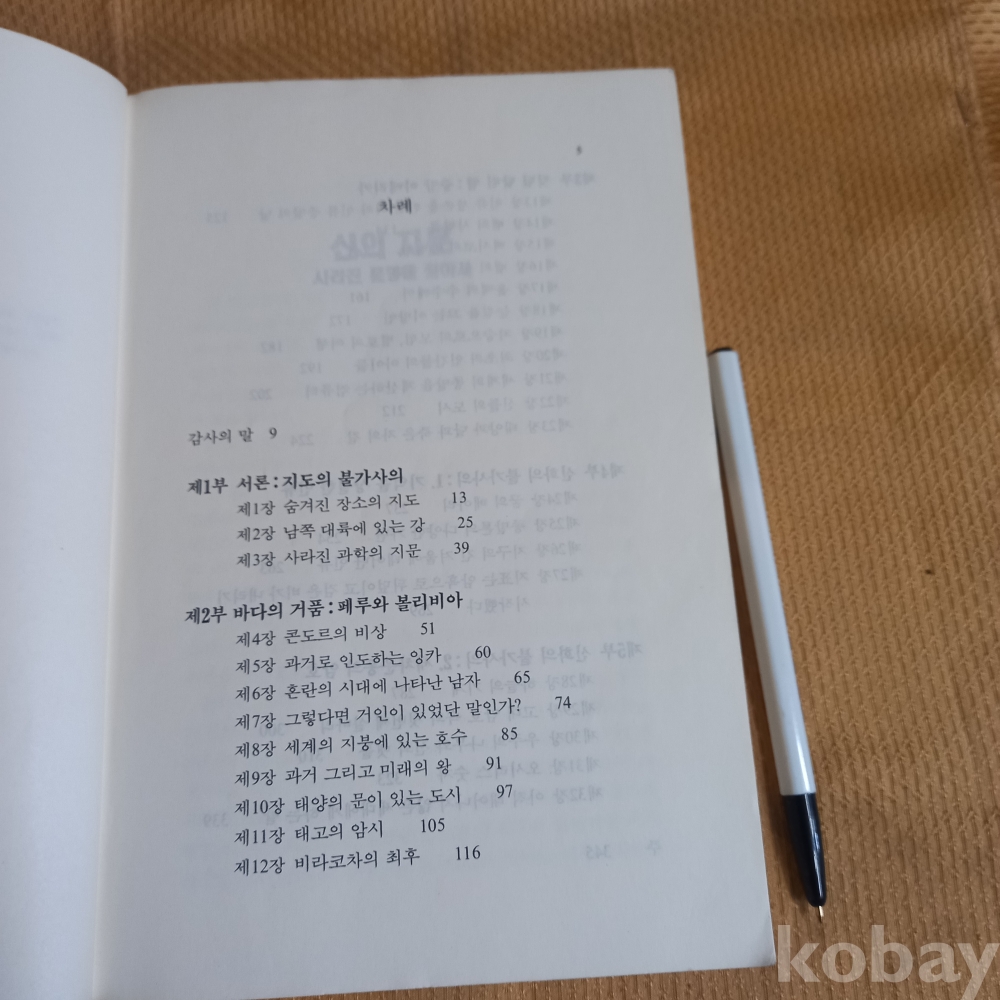 5
차례
감사의 말 9
제1부 서론 : 지도의 불가사의
제1장 숨겨진 장소의 지도 13
제2장 남쪽 대륙에 있는 강 25
제3장 사라진 과학의 지문 39
제2부 바다의 거품 : 페루와 볼리비아
제4장 콘도르의 비상 51
제5장 과거로 인도하는 잉카 60
제6장 혼란의 시대에 나타난 남자 65
제7장 그렇다면 거인이 있었단 말인가? 74
제8장 세계의 지붕에 있는 호수 85
제9장 과거 그리고 미래의 왕 91
제10장 태양의 문이 있는 도시 97
제11장 태고의 암시 105
제12장 비라코차의 최후 116
kobay